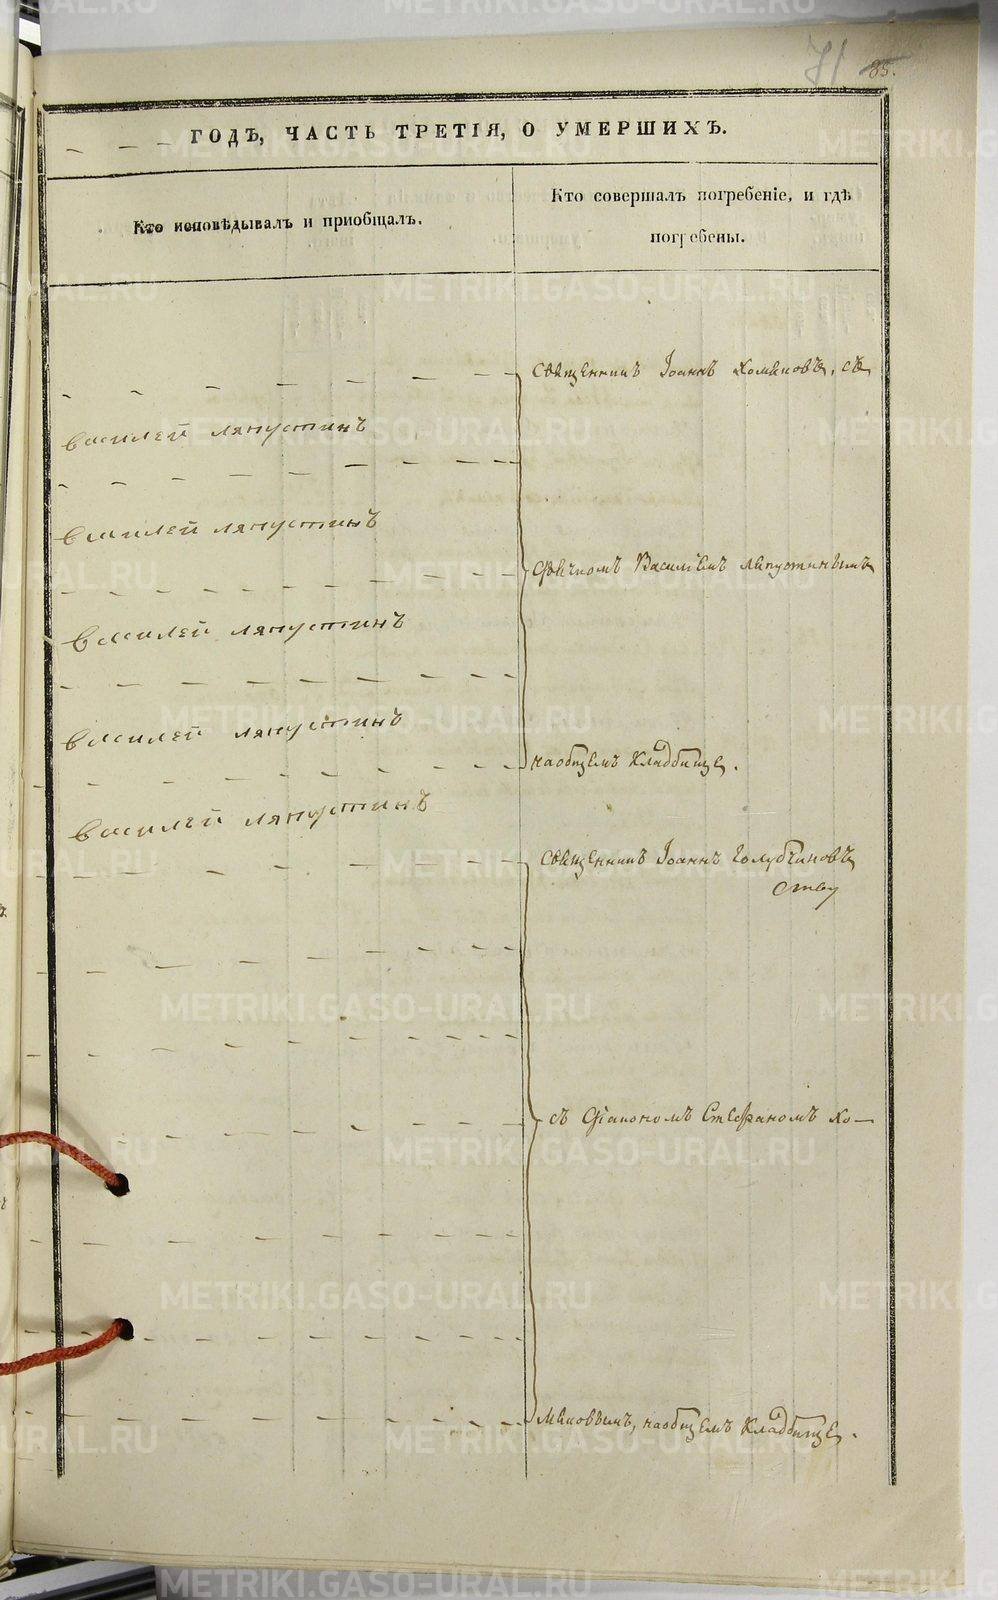 71 85.
ГОДЪ, ЧАСТЬ ТРЕТІЯ, О УМЕРШИХЪ.
Кто исповѣдывалъ и приобщалъ.
Кто совершалъ погребеніе, и гдѣ
погребены.
Священникъ Іоаннъ Хомяковъ, съ
Василей Ляпустинъ
Василей Ляпустинъ
Дьячкомъ Василіемъ Ляпустинымъ
Василей Ляпустинъ
Василей Ляпустинъ
на общемъ кладбище.
Василей Ляпустинъ
Священникъ Іоаннъ Голубчиковъ
съ Діакономъ Стефаномъ Хо-
мяковымъ, на общемъ кладбище.
METRIKI.GASO-URAL.RU